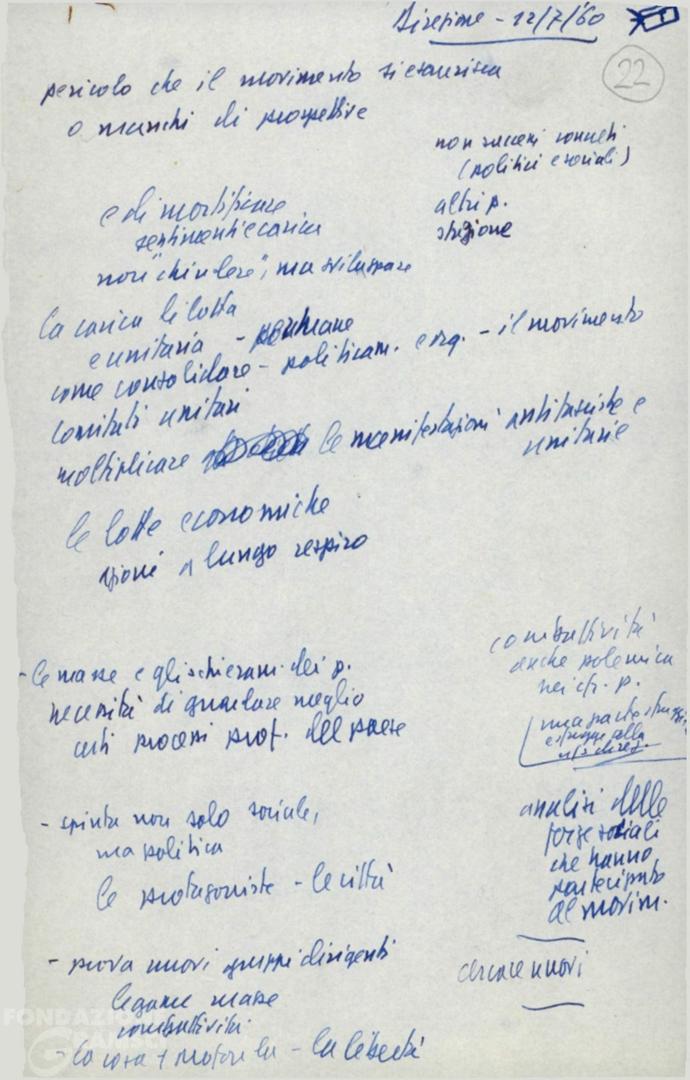 Direzione - 12/7/60
22
pericolo che il movimento si esaurisca
o manchi di prospettive
non successi concreti
(politici e sociali)
altri p.
stagione
e di mortificare
sentimenti e carica
non "chiudere", ma sviluppare
la carica di lotta
e unitaria - permane
come consolidare - politicam. e org. - il movimento
comitati unitari
moltiplicare le manifestazioni antifasciste e
unitarie
le lotte economiche
azioni a lungo respiro
combattività
anche polemica
nei cfr. p.
- le masse e gli schieram. dei p.
necessità di guardare meglio
certi processi prof. del paese
una parte
alla
- spinta non solo sociale,
ma politica
le protagoniste - le città
analisi delle
forze sociali
che hanno
partecipato
al movim.
- prova nuovi gruppi dirigenti
legame masse
combattività
cercare nuovi
- la cosa + - la libertà
FONDAZIONE
GRAMSCI